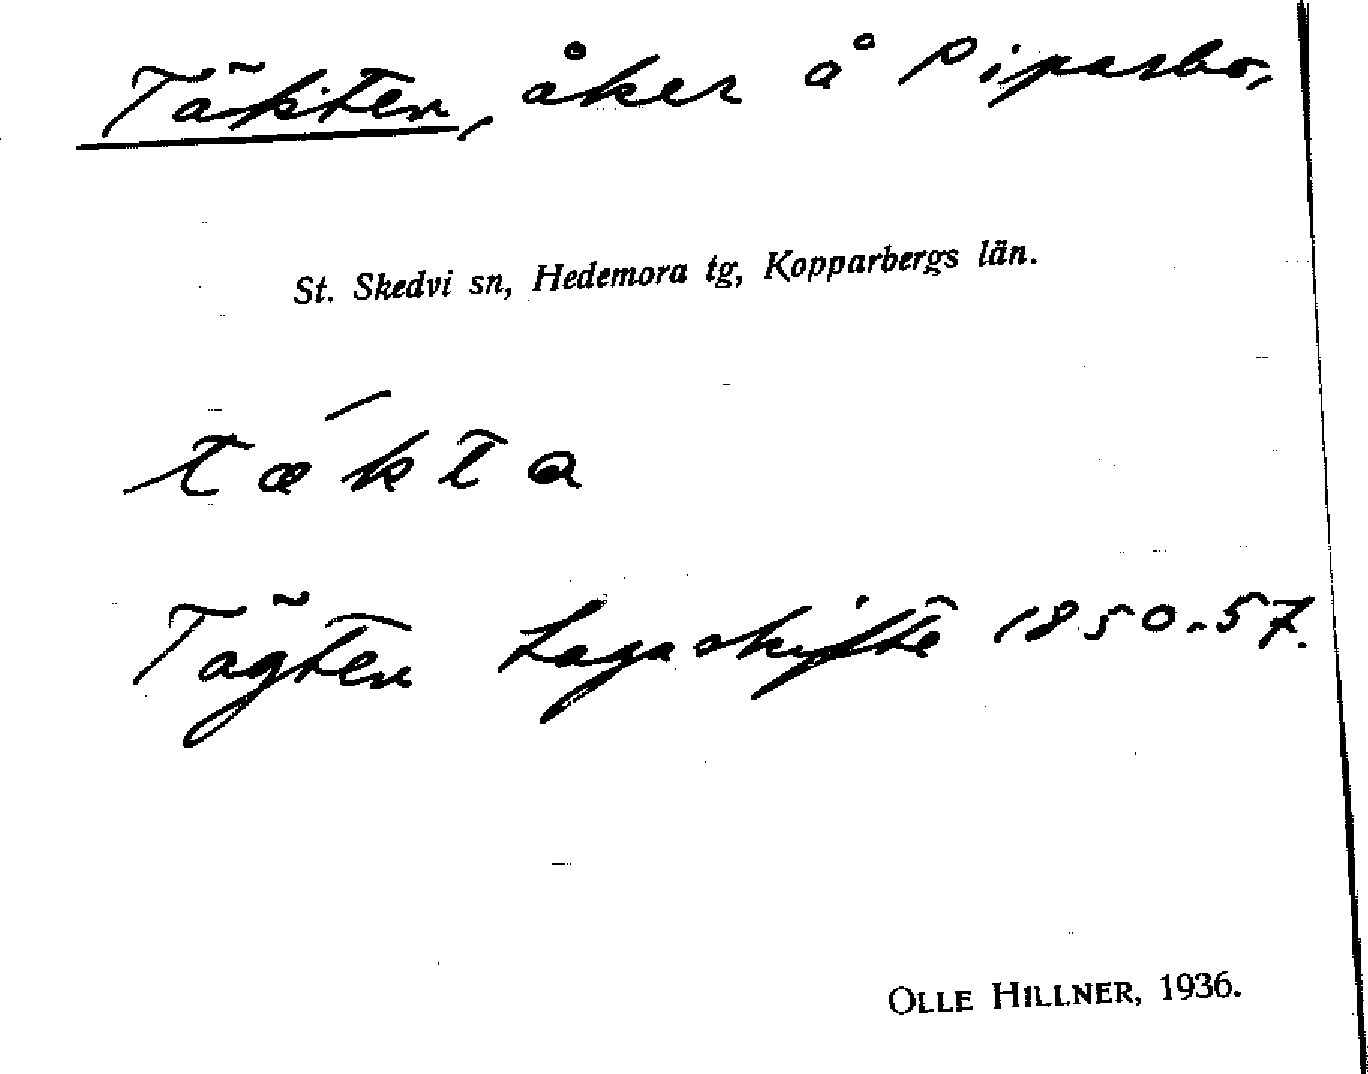 Täkten, åker å Piparsbo,
St. Skedvi sn, Hedemora tg, Kopparbergs län.
tækta
Tägten Laga skifte 1850-57.
OLLE HILLNER, 1936.